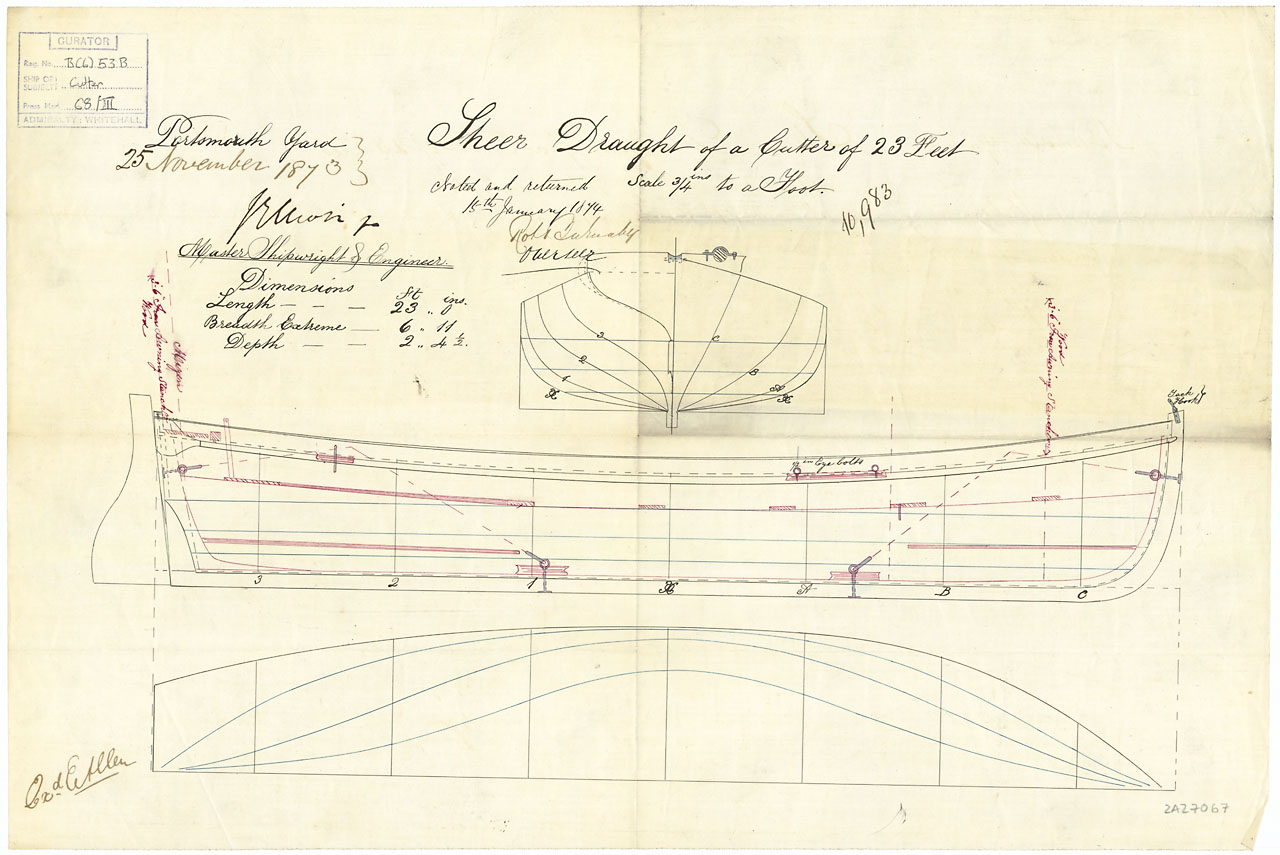 CURATOR
Reg. No. B(6) 53 B
SHIP OR SUBJECT Cutter
Press Mark 68/III
ADMIRALTY: WHITEHALL
Portsmouth Yard
25 November 1873
Master Shipwright & Engineer.
Sheer Draught of a Cutter of 23 Feet
Scale 3/4 ins to a Foot.
Noted and returned
15th January 1874
10,983
Dimensions
Ft ins.
Length — — — 23 .. 0
Breadth Extreme — 6 .. 11
Depth — — 2 .. 4 1/2.
Wood
Mizen
Wood
Tack Hook
in Eye bolts
3
2
1
C
B
A
3 2 1 A B C
Exd E Allen
2A27067